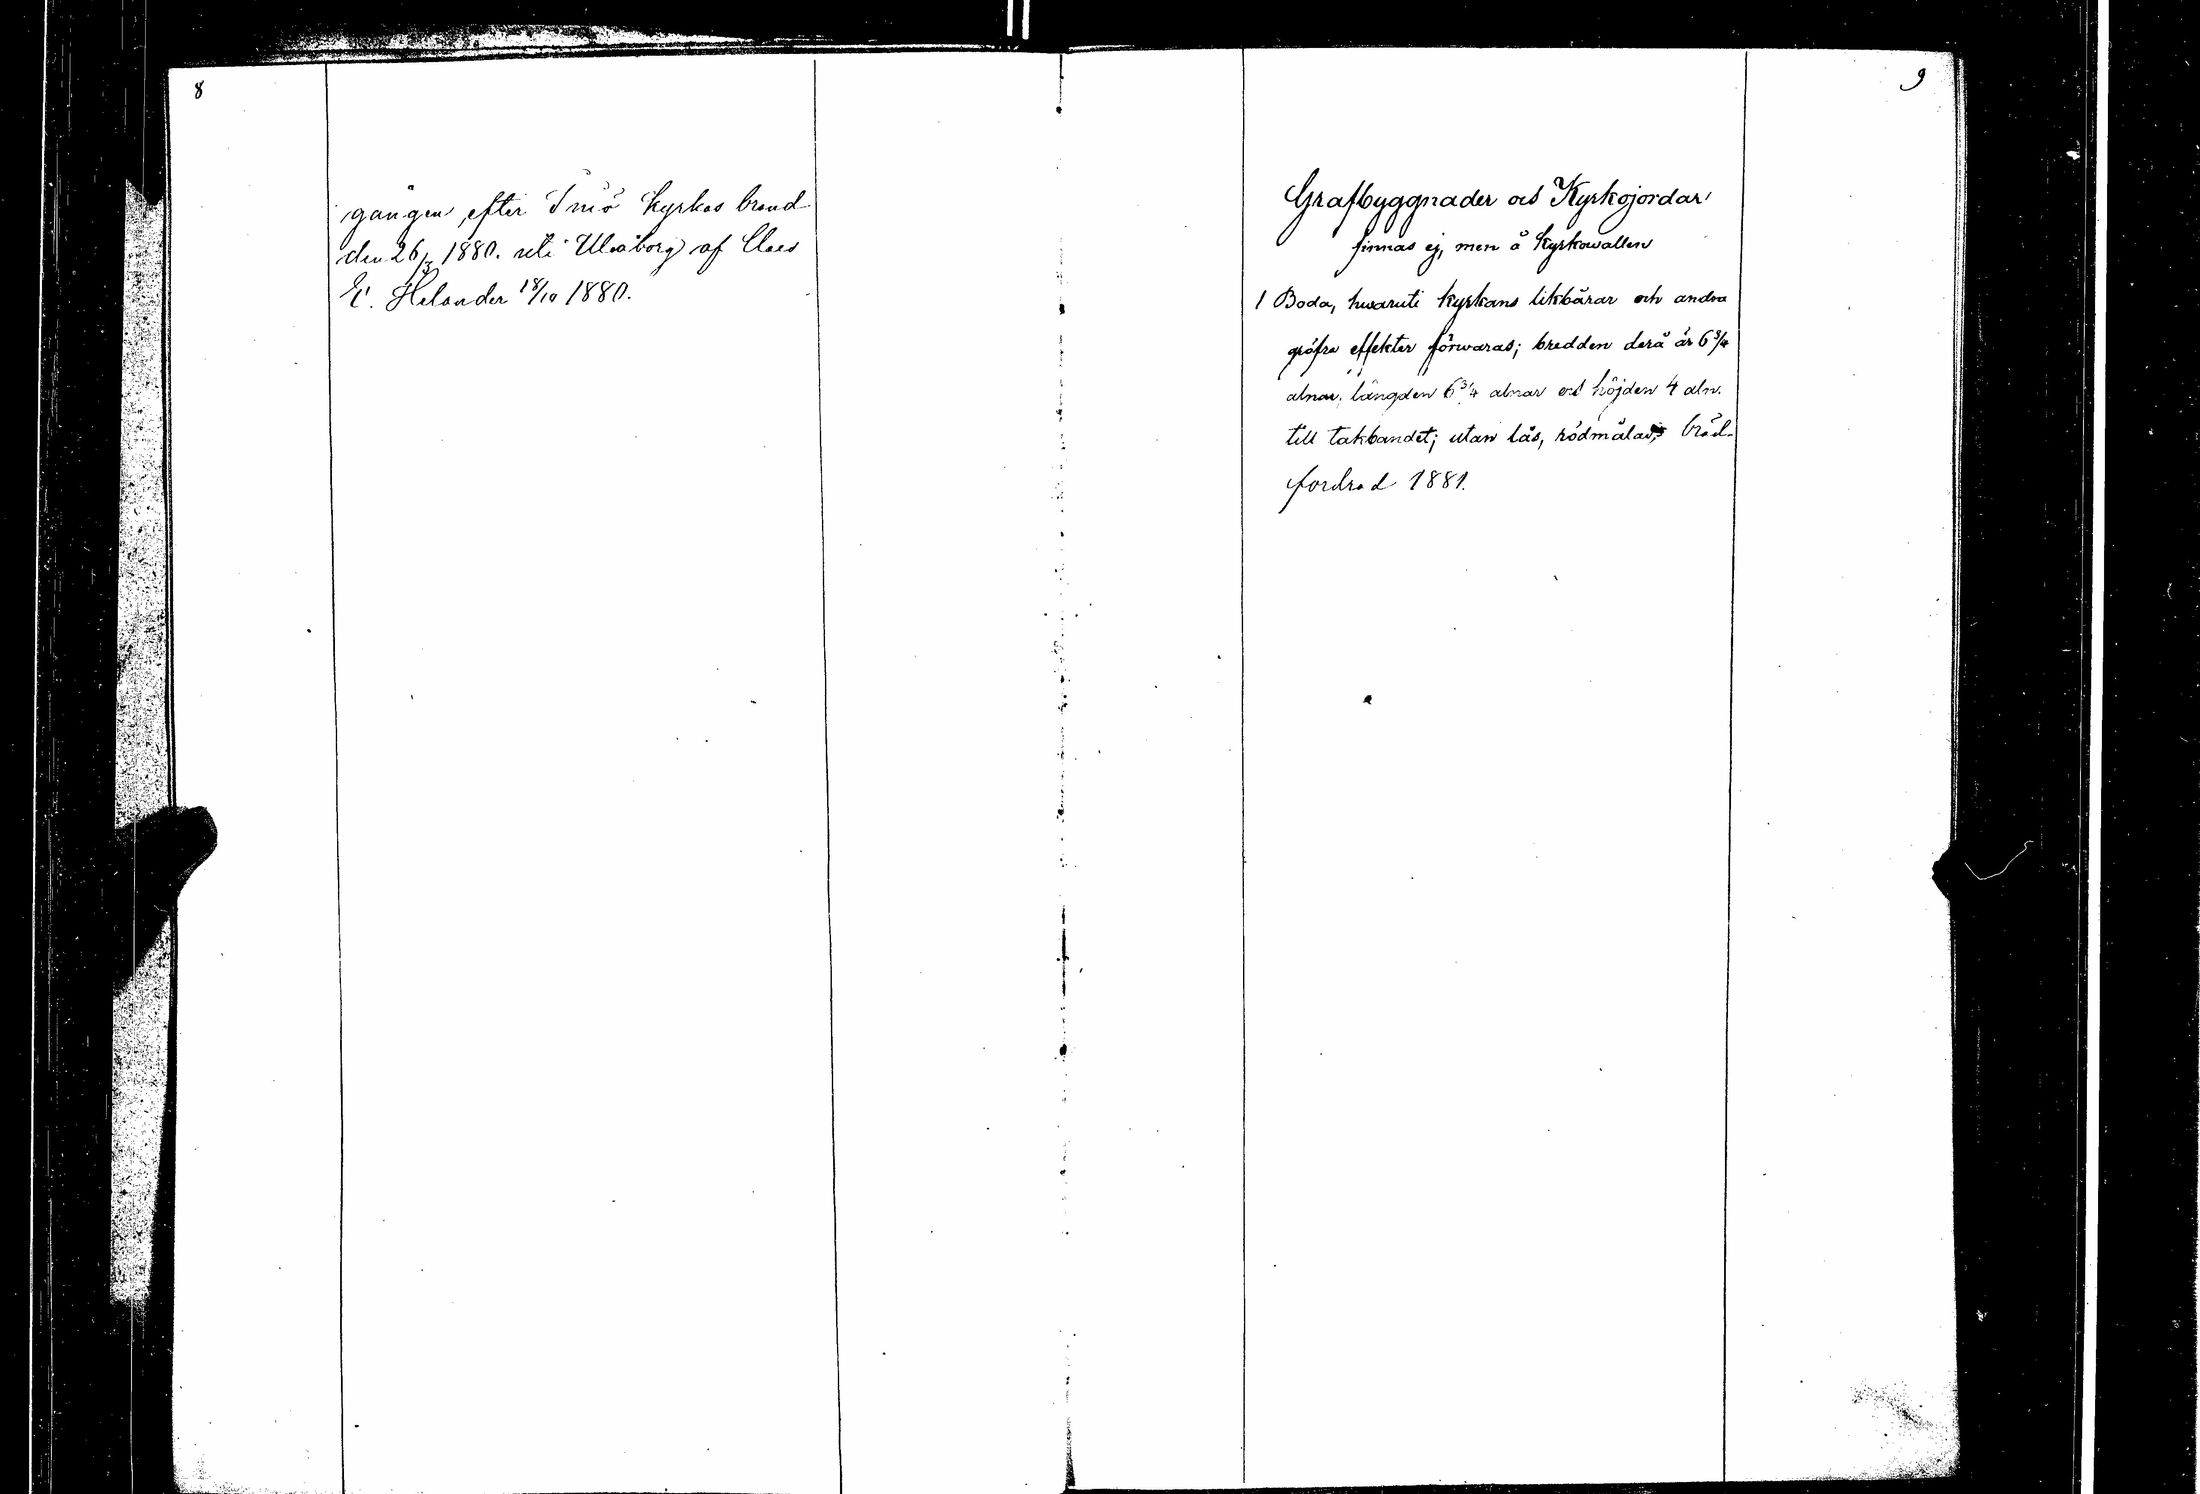 8
gången, efter Simo kyrkas brand
den 26/3 1880. uti Uleåborg af Claes
E. Helander 18/10 1880.
9
Grafbyggnader och Kyrkojordar
finnas ej, men å Kyrkowallen
1 Boda, hwaruti kyrkans likbårar och andra
gröfre effekter förwaras; bredden derå är 6 3/4
alnar, längden 6 3/4 alnar och höjden 4 aln.
till takbandet; utan lås, rödmålad, bräd-
fordrad 1881.